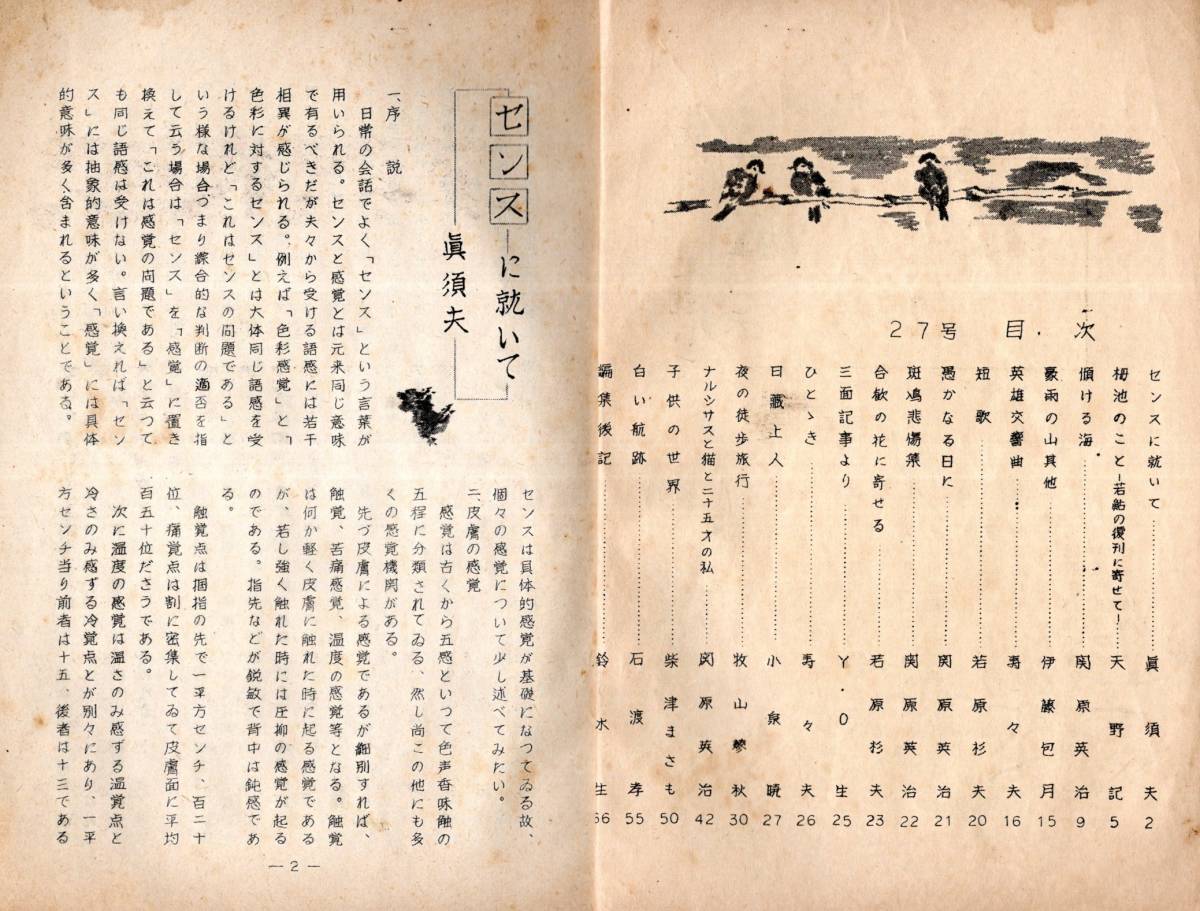 27号 目次
センスに就いて……眞須夫 2
栂池のこと―若鮎の復刊に寄せて―天野記 5
傾ける海……関原英治 9
豪雨の山其他……伊藤包月 15
英雄交響曲……寿々夫 16
短歌……若原杉夫 20
愚かなる日に……関原英治 21
斑鳩悲傷集……関原英治 22
合歓の花に寄せる……若原杉夫 23
三面記事より……Y.O生 25
ひとゝき……寿々夫 26
日蔵上人……小泉暁 27
夜の徒歩旅行……牧山夢秋 30
ナルシサスと猫と二十五才の私……関原英治 42
子供の世界……柴津まさも 50
白い航跡……石渡孝 55
編集後記……鈴木生 66
センスに就いて
眞須夫
一、序説
日常の会話でよく「センス」という言葉が
用いられる。センスと感覚とは元来同じ意味
で有るべきだが夫々から受ける語感には若干
相異が感じられる。例えば「色彩感覚」と「
色彩に対するセンス」とは大体同じ語感を受
けるけれど「これはセンスの問題である」と
いう様な場合づまり綜合的な判断の適否を指
して云う場合は「センス」を「感覚」に置き
換えて「これは感覚の問題である」と云つて
も同じ語感は受けない。言い換えれば「セン
ス」には抽象的意味が多く「感覚」には具体
的意味が多く含まれるということである。
センスは具体的感覚が基礎になつてゐる故、
個々の感覚について少し述べてみたい。
二、皮膚の感覚
感覚は古くから五感といつて色声香味触の
五程に分類されてゐる、然し尚この他にも多
くの感覚機関がある。
先づ皮膚による感覚であるが細別すれば、
触覚、苦痛感覚、温度の感覚等となる。触覚
は何か軽く皮膚に触れた時に起る感覚である
が、若し強く触れた時には圧抑の感覚が起る
のである。指先などが鋭敏で背中は鈍感であ
る。
触覚点は掴指の先で一平方センチ、百二十
位、痛覚点は割に密集してゐて皮膚面に平均
百五十位ださうである。
次に温度の感覚は温さのみ感ずる温覚点と
冷さのみ感ずる冷覚点とが別々にあり、一平
方センチ当り前者は十五、後者は十三である
―2―